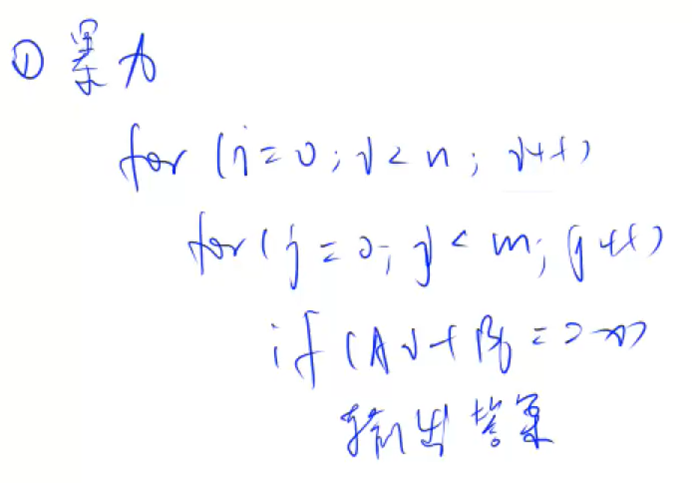 ① 暴力
for (i = 0; i < n; i++)
for (j = 0; j < m; j++)
if (Ai + Bj == x)
输出答案